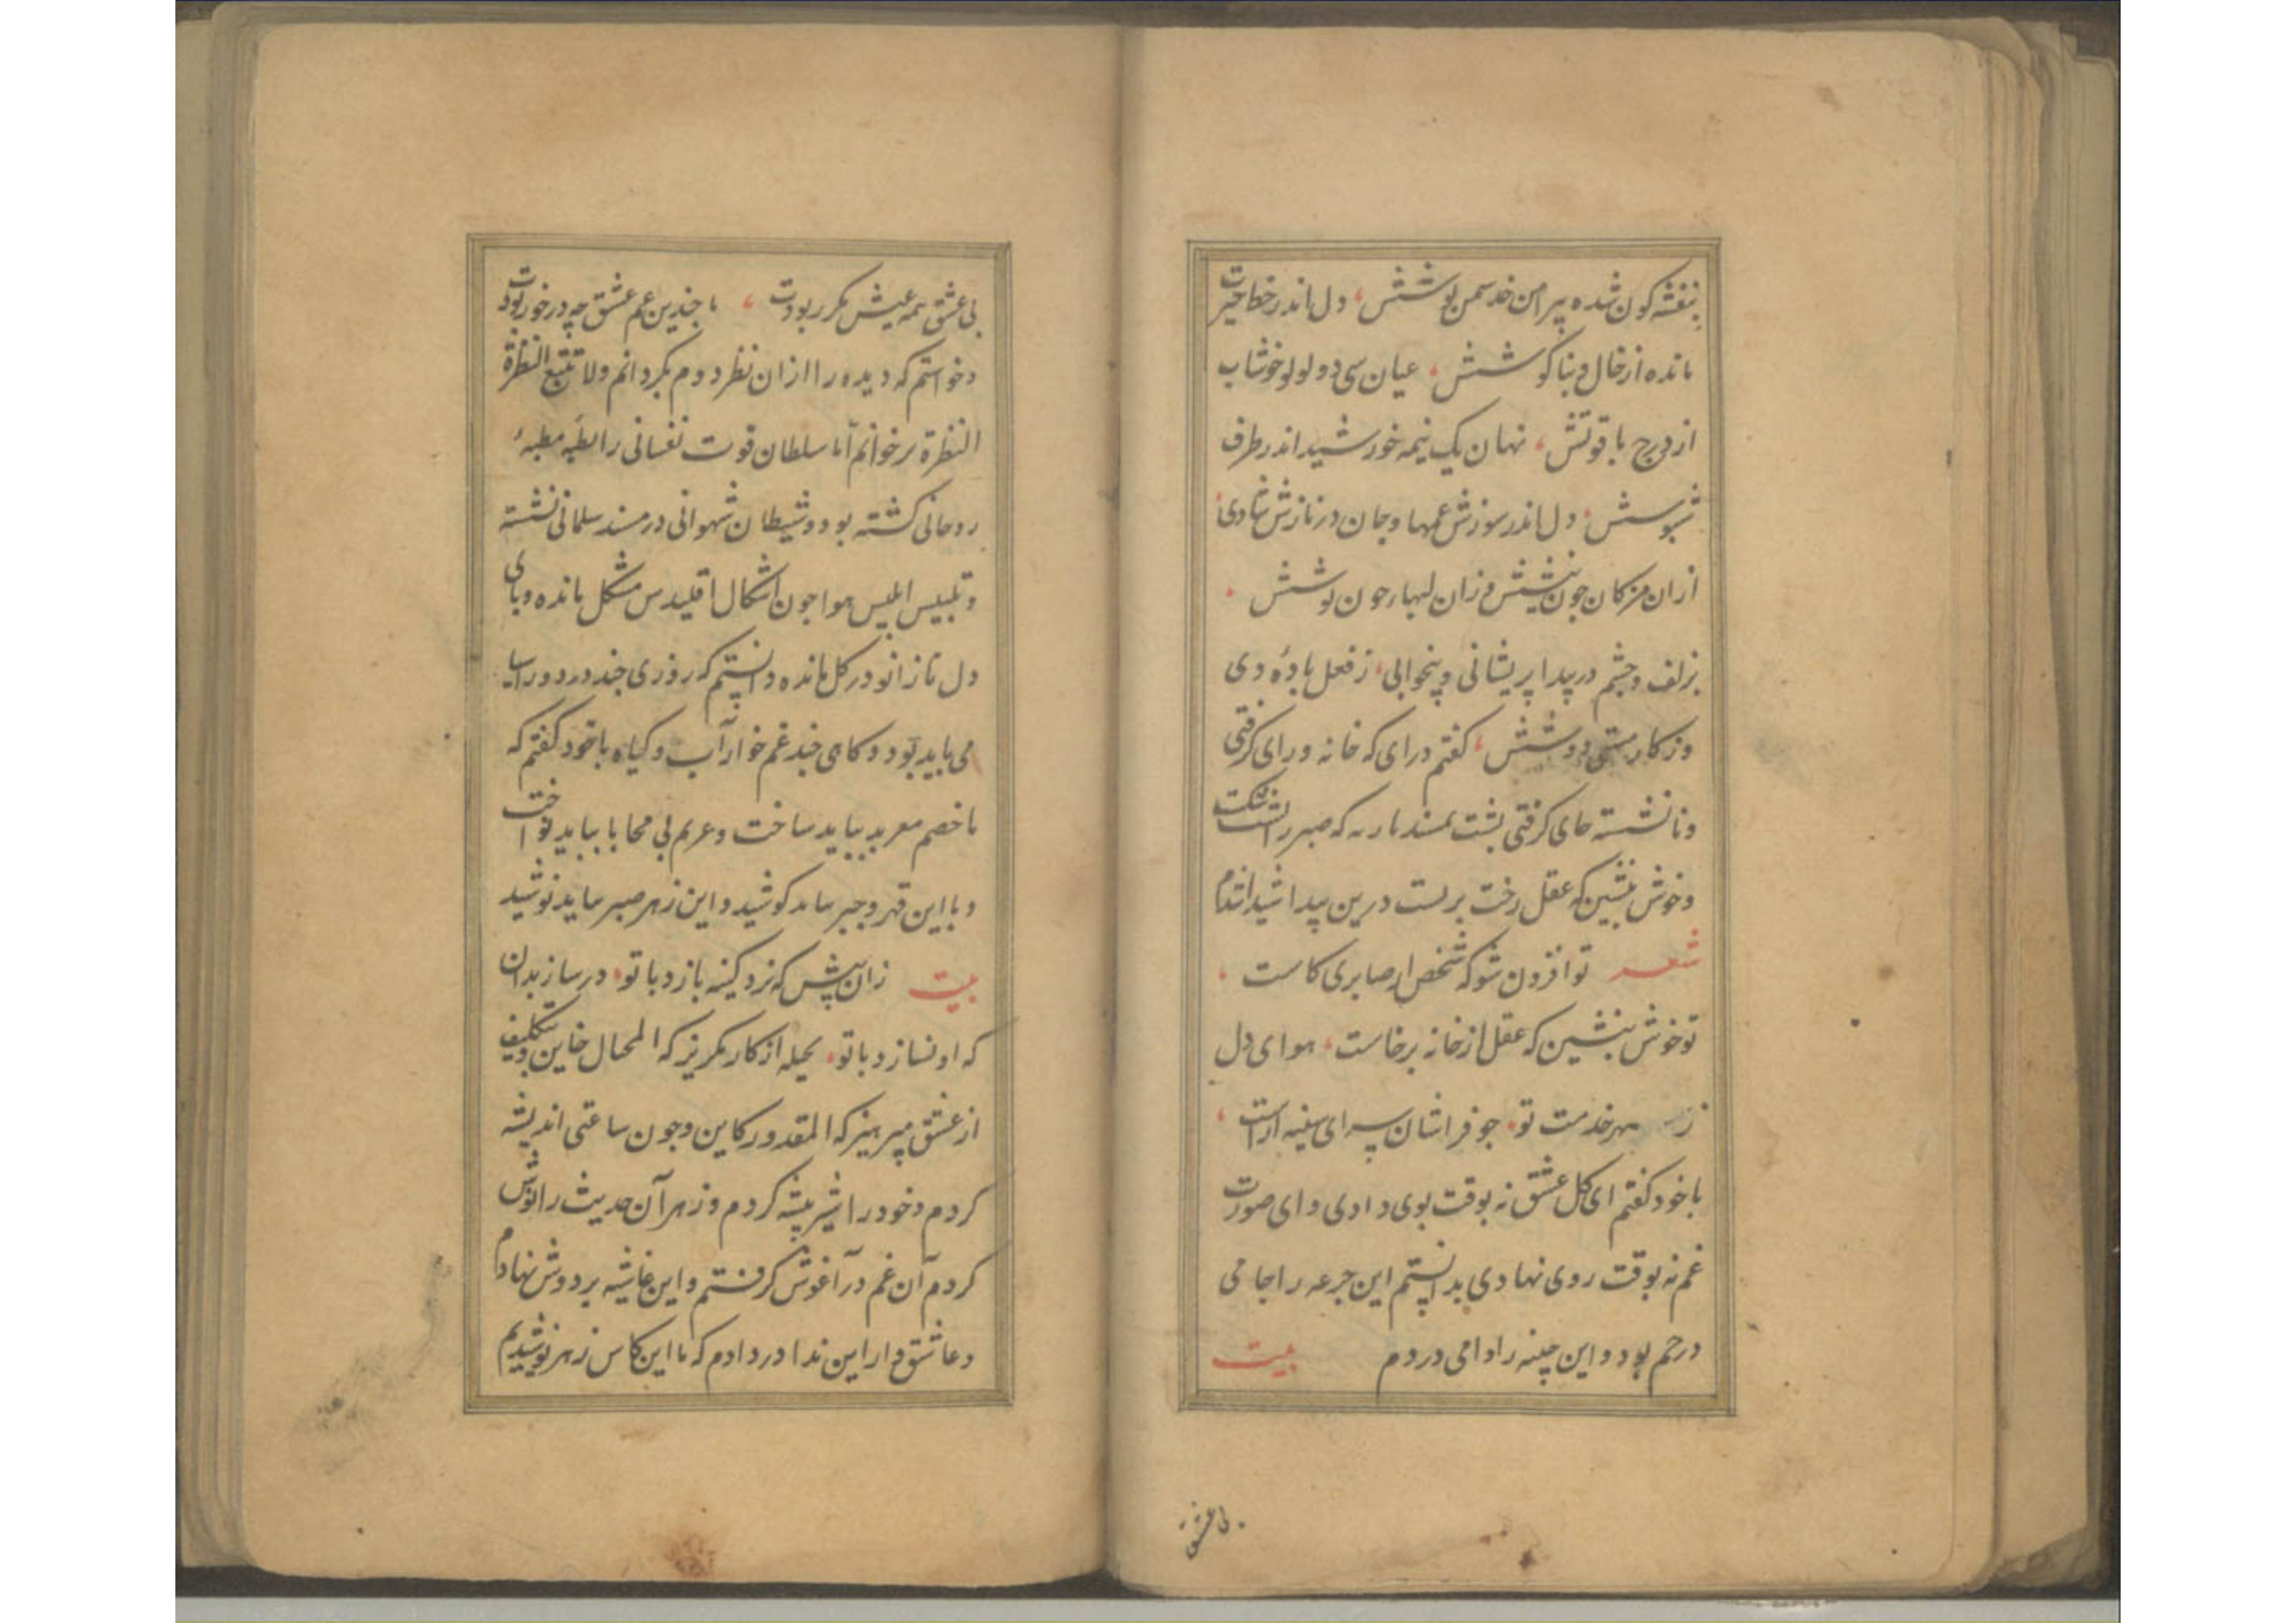 بنفشه کون شده پیرامن خد سمن پوشش، دل اندر خط حیرت
مانده از خال و بناکوشش، عیان سی و دو لولو خوشاب
از درج یاقوتش، نهان یک نیمه خورشید اندر طرف
شبپوشش، دل اندر سوزش غمها و جان در نازش شادی
از ان مژکان چون نیشش و زان لبهاء چون نوشش
بزلف و چشم در پیدا پریشانی و بیخوابی، ز فعل باده دی
وز کار مستی دوشش، کفتم درای که خانه ورای کرفتی
و نانشسته جای کرفتی پشت بمسند بازنه که صبر را پشت
و خوش بنشین که عقل رخت بربست درین
شعر تو افزون شو که شخص صابری کاست
تو خوش بنشین که عقل از خانه برخاست، هوای دل
ز بهر خدمت تو، چو فراشان سرای سینه اراست
با خود کفتم ای کل عشق نه بوقت بوی دادی و ای صورت
غم نه بوقت روی نهادی بدانستم این جرعه را جامی
در خم بود و این چینه را دامی در دم بیت
بی عشق
بی عشق همه عیش مکرر بودت، با چندین غم عشق چه در خور بودت
و خواستم که دیده را از ان نظر دوم بکردانم ولا تتبع النظرة
النظرة برخوانم اما سلطان قوت نفسانی رابطه مطیه
روحانی کشته بود و شیطان شهوانی در مسند سلمانی نشسته
و تلبیس ابلیس هوا چون اشکال اقلیدس مشکل مانده و پای
دل تا زانو در کل مانده دانستم که روزی چند درد و را سیا
می باید بود و کاهی چند غم خوار آب و کیاه با خود کفتم که
با خصم معربد بباید ساخت و غریم بی محابا بباید نواخت
و با این قهر و جبر بباید کوشید و این زهر صبر بباید نوشید
بیت زان پیش که نرد کینه بازد با تو، در ساز بدان
که او نسازد با تو، بحیله از کار مکریز که المحال خاین و بتکلیف
از عشق مپرهیز که المقدور کاین و چون ساعتی اندیشه
کردم و خود را شیر بیشه کردم و زهر آن حدیث را نوش
کردم آن غم در آغوش کرفتم و این غاشیه بر دوش نهادم
و عاشق وار این ندا در دادم که ما این کاس زهر نوشیدیم